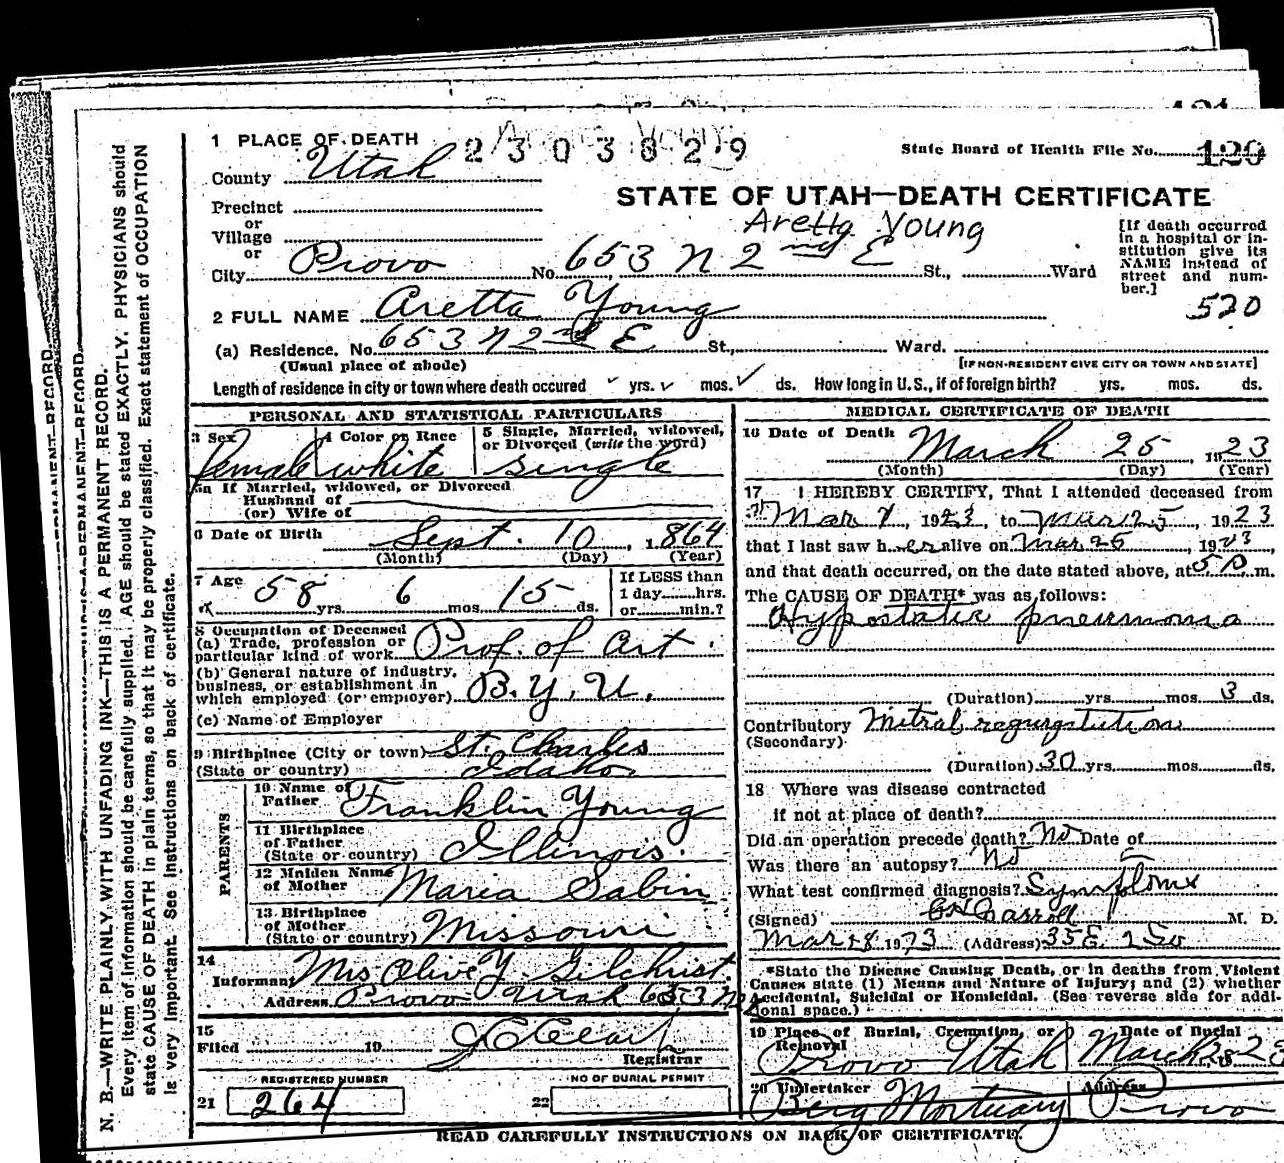 Aretta Young
1 PLACE OF DEATH
2303829
State Board of Health File No. 120
County Utah
STATE OF UTAH—DEATH CERTIFICATE
Precinct
or
Village
or
Aretta Young
City Provo No. 653 N 2nd E St., Ward
[If death occurred in a hospital or in-
stitution give its
NAME instead of
street and num-
ber.]
520
2 FULL NAME Aretta Young
(a) Residence. No. 653 N 2nd E St., Ward.
(Usual place of abode) [IF NON-RESIDENT GIVE CITY OR TOWN AND STATE]
Length of residence in city or town where death occured yrs. mos. ds. How long in U. S., if of foreign birth? yrs. mos. ds.
PERSONAL AND STATISTICAL PARTICULARS
3 Sex female
4 Color or Race white
5 Single, Married, widowed,
or Divorced (write the word)
single
5a If Married, widowed, or Divorced
Husband of
(or) Wife of
6 Date of Birth Sept. 10, 1864
(Month) (Day) (Year)
7 Age 58 yrs. 6 mos. 15 ds.
If LESS than
1 day hrs.
or min.?
8 Occupation of Deceased
(a) Trade, profession or
particular kind of work Prof. of Art.
(b) General nature of industry,
business, or establishment in
which employed (or employer) B.Y.U.
(c) Name of Employer
9 Birthplace (City or town) St. Charles
(State or country) Idaho
PARENTS
10 Name of
Father Franklin Young
11 Birthplace
of Father
(State or country) Illinois.
12 Maiden Name
of Mother Maria Sabin
13 Birthplace
of Mother
(State or country) Missouri
14
Informant Mrs Olive Y. Gilchrist.
Address Provo Utah 653 N
15
Filed 19
Registrar
REGISTERED NUMBER
21 264
NO OF BURIAL PERMIT
22
MEDICAL CERTIFICATE OF DEATH
16 Date of Death March 25, 1923
(Month) (Day) (Year)
17 I HEREBY CERTIFY, That I attended deceased from
Mar 7, 1923, to Mar 25, 1923
that I last saw her alive on Mar 25, 1923,
and that death occurred, on the date stated above, at 5 P. m.
The CAUSE OF DEATH* was as follows:
Hypostatic pneumonia
(Duration) yrs. mos. 3 ds.
Contributory Mitral regurgitation
(Secondary)
(Duration) 30 yrs. mos. ds.
18 Where was disease contracted
if not at place of death?
Did an operation precede death? No Date of
Was there an autopsy? No
What test confirmed diagnosis? Symptoms
(Signed) Carroll M. D.
Mar 28 1923 (Address) 35 E. 2 So
*State the Disease Causing Death, or in deaths from Violent
Causes state (1) Means and Nature of Injury; and (2) whether
Accidental, Suicidal or Homicidal. (See reverse side for addi-
tional space.)
19 Place of Burial, Cremation, or Removal Date of Burial
Provo Utah March 28 23
20 Undertaker Address
Berg Mortuary Provo
READ CAREFULLY INSTRUCTIONS ON BACK OF CERTIFICATE.
N. B.—WRITE PLAINLY, WITH UNFADING INK—THIS IS A PERMANENT RECORD.
Every item of information should be carefully supplied. AGE should be stated EXACTLY. PHYSICIANS should
state CAUSE OF DEATH in plain terms, so that it may be properly classified. Exact statement of OCCUPATION
is very important. See instructions on back of certificate.